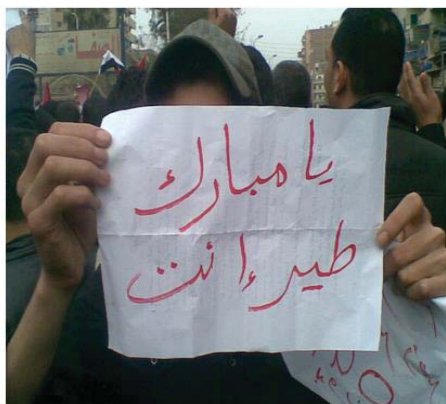 يا مبارك
طير إنت